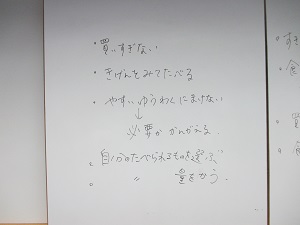 ・買いすぎない
・きげんをみてたべる
・やすいゆうわくにまけない
↓
必要か かんがえる
。自分のたべられるものを選ぶ
。 〃 量をかう.
・すき
・食
・買
・食